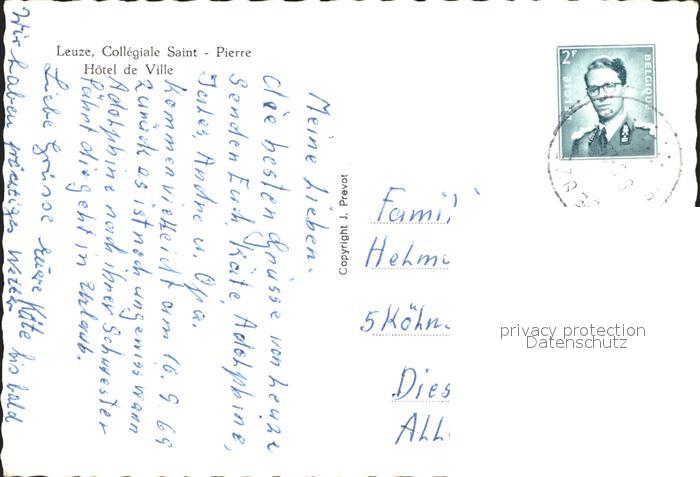 Leuze, Collégiale Saint - Pierre
Hôtel de Ville
Meine Lieben.
Die besten Grüsse von Leuze
Senden Euch, Käte, Adolphine,
Andre u. Opa.
kommen vielleicht am 16.9.69
zurück es ist noch ungewiss wann
Adolphine nach ihrer Schwester
fährt die geht in Urlaub.
Liebe Grüsse eure Käte bis bald
Wir haben prächtiges Wetter
Copyright J. Prevot
2F
BELGIE BELGIQUE
Famil
Helmu
5 Köln-
Dies
ALL
privacy protection
Datenschutz